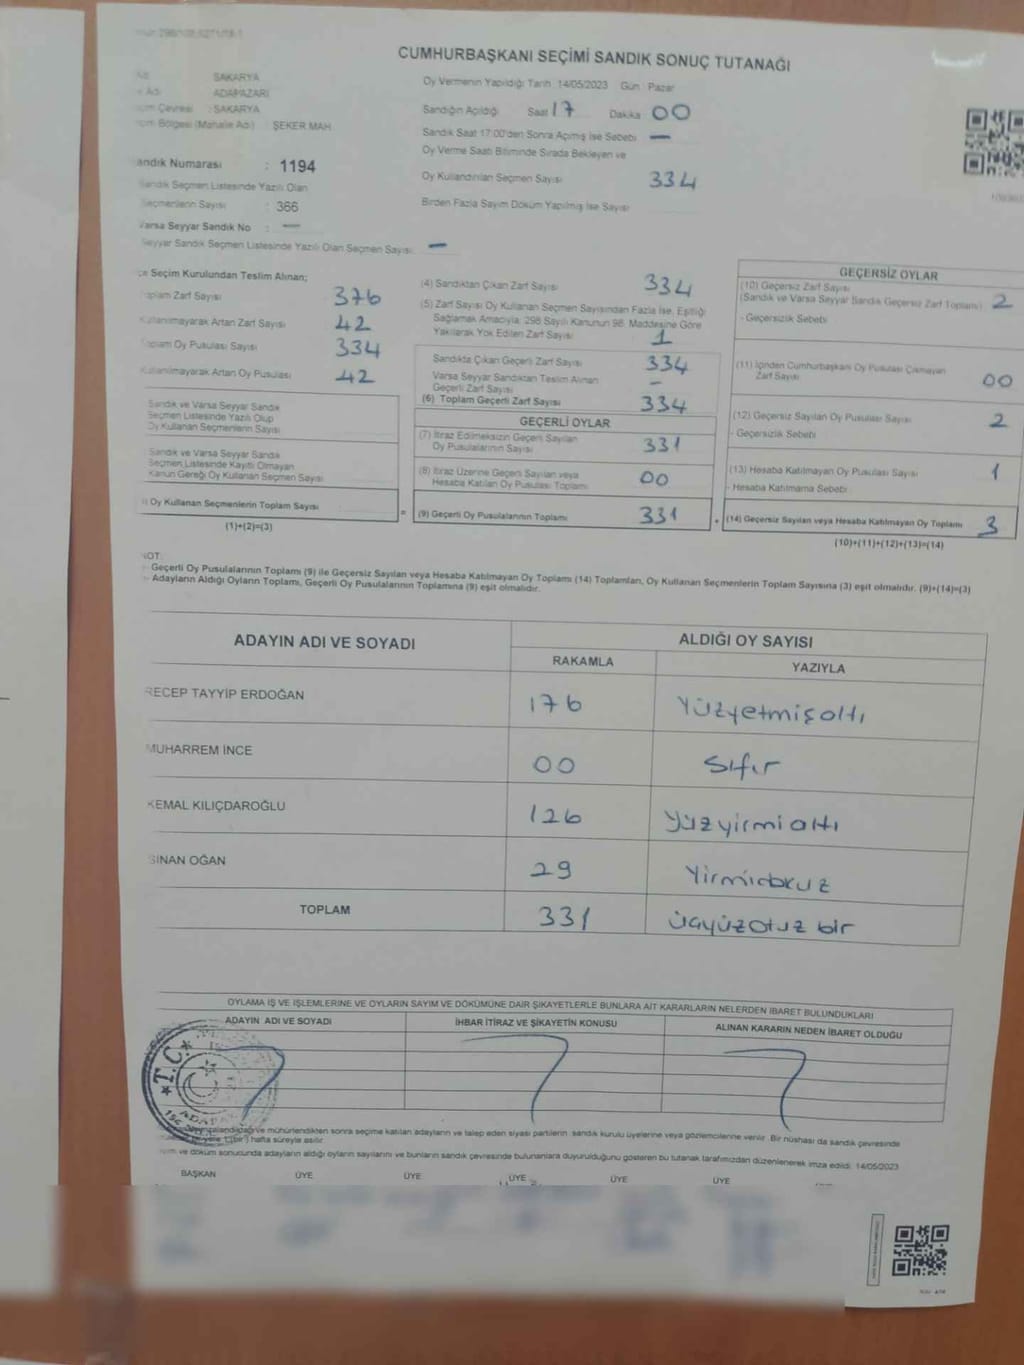 CUMHURBAŞKANI SEÇİMİ SANDIK SONUÇ TUTANAĞI
SAKARYA
Adı ADAPAZARI
Çevresi : SAKARYA
Bölgesi (Mahalle Adı) : ŞEKER MAH.
Sandık Numarası : 1194
Sandık Seçmen Listesinde Yazılı Olan
Seçmenlerin Sayısı : 366
Varsa Seyyar Sandık No : —
Seyyar Sandık Seçmen Listesinde Yazılı Olan Seçmen Sayısı: —
Oy Vermenin Yapıldığı Tarih :14/05/2023 Gün : Pazar
Sandığın Açıldığı Saat 17 Dakika 00
Sandık Saat 17:00'den Sonra Açılmış İse Sebebi —
Oy Verme Saati Bitiminde Sırada Bekleyen ve
Oy Kullandırılan Seçmen Sayısı 334
Birden Fazla Sayım Döküm Yapılmış İse Sayısı
Seçim Kurulundan Teslim Alınan;
Toplam Zarf Sayısı 376
Kullanılmayarak Artan Zarf Sayısı 42
Toplam Oy Pusulası Sayısı 334
Kullanılmayarak Artan Oy Pusulası 42
Sandık ve Varsa Seyyar Sandık
Seçmen Listesinde Yazılı Olup
Oy Kullanan Seçmenlerin Sayısı
Sandık ve Varsa Seyyar Sandık
Seçmen Listesinde Kayıtlı Olmayan
Kanun Gereği Oy Kullanan Seçmen Sayısı
Oy Kullanan Seçmenlerin Toplam Sayısı =
(1)+(2)=(3)
(4) Sandıktan Çıkan Zarf Sayısı 334
(5) Zarf Sayısı Oy Kullanan Seçmen Sayısından Fazla İse, Eşitliği
Sağlamak Amacıyla, 298 Sayılı Kanunun 98. Maddesine Göre
Yakılarak Yok Edilen Zarf Sayısı 1
Sandıkta Çıkan Geçerli Zarf Sayısı 334
Varsa Seyyar Sandıktan Teslim Alınan
Geçerli Zarf Sayısı –
(6) Toplam Geçerli Zarf Sayısı 334
GEÇERLİ OYLAR
(7) İtiraz Edilmeksizin Geçerli Sayılan
Oy Pusulalarının Sayısı 331
(8) İtiraz Üzerine Geçerli Sayılan veya
Hesaba Katılan Oy Pusulası Toplamı 00
(9) Geçerli Oy Pusulalarının Toplamı 331 +
GEÇERSİZ OYLAR
(10) Geçersiz Zarf Sayısı
(Sandık ve Varsa Seyyar Sandık Geçersiz Zarf Toplamı) 2
- Geçersizlik Sebebi
(11) İçinden Cumhurbaşkanı Oy Pusulası Çıkmayan
Zarf Sayısı 00
(12) Geçersiz Sayılan Oy Pusulası Sayısı 2
- Geçersizlik Sebebi
(13) Hesaba Katılmayan Oy Pusulası Sayısı 1
- Hesaba Katılmama Sebebi
(14) Geçersiz Sayılan veya Hesaba Katılmayan Oy Toplamı 3
(10)+(11)+(12)+(13)=(14)
NOT:
- Geçerli Oy Pusulalarının Toplamı (9) ile Geçersiz Sayılan veya Hesaba Katılmayan Oy Toplamı (14) Toplamları, Oy Kullanan Seçmenlerin Toplam Sayısına (3) eşit olmalıdır. (9)+(14)=(3)
- Adayların Aldığı Oyların Toplamı, Geçerli Oy Pusulalarının Toplamına (9) eşit olmalıdır.
ADAYIN ADI VE SOYADI ALDIĞI OY SAYISI
RAKAMLA YAZIYLA
RECEP TAYYİP ERDOĞAN 176 Yüzyetmişaltı
MUHARREM İNCE 00 Sıfır
KEMAL KILIÇDAROĞLU 126 Yüzyirmialtı
SİNAN OĞAN 29 Yirmidokuz
TOPLAM 331 üçyüzotuz bir
OYLAMA İŞ VE İŞLEMLERİNE VE OYLARIN SAYIM VE DÖKÜMÜNE DAİR ŞİKAYETLERLE BUNLARA AİT KARARLARIN NELERDEN İBARET BULUNDUKLARI
ADAYIN ADI VE SOYADI İHBAR İTİRAZ VE ŞİKAYETİN KONUSU ALINAN KARARIN NEDEN İBARET OLDUĞU
T.C.
mühürlendikten sonra seçime katılan adayların ve talep eden siyasi partilerin sandık kurulu üyelerine veya gözlemcilerine verilir. Bir nüshası da sandık çevresinde
hafta süreyle asılır.
ve döküm sonucunda adayların aldığı oyların sayılarını ve bunların sandık çevresinde bulunanlara duyurulduğunu gösteren bu tutanak tarafımızdan düzenlenerek imza edildi. 14/05/2023
BAŞKAN ÜYE ÜYE ÜYE ÜYE ÜYE